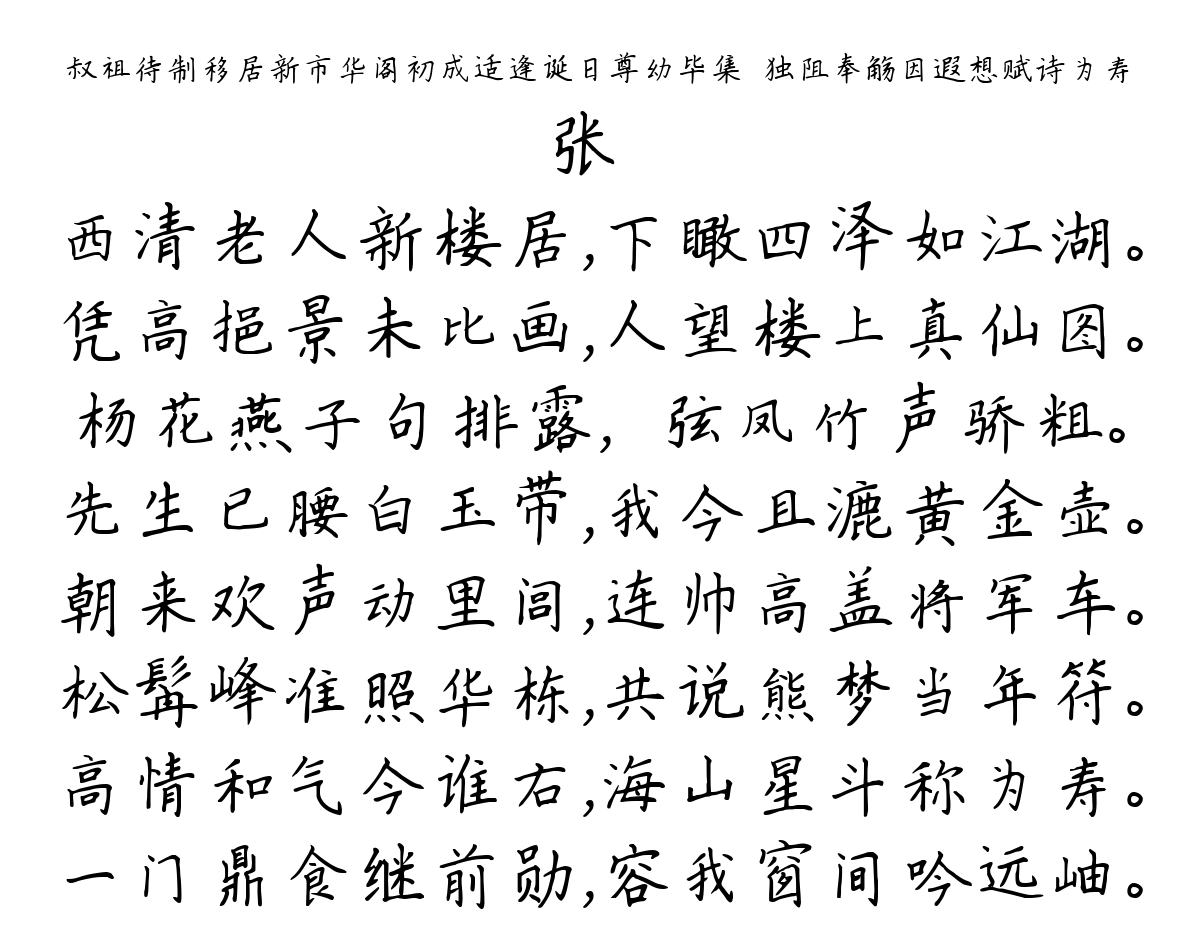 叔祖待制移居新市华阁初成适逢诞日尊幼毕集 独阻奉觞因遐想赋诗为寿
张
西清老人新楼居,下瞰四泽如江湖。
凭高挹景未比画,人望楼上真仙图。
杨花燕子句排露, 弦凤竹声骄粗。
先生已腰白玉带,我今且漉黄金壶。
朝来欢声动里闾,连帅高盖将军车。
松髯峰准照华栋,共说熊梦当年符。
高情和气今谁右,海山星斗称为寿。
一门鼎食继前勋,容我窗间吟远岫。